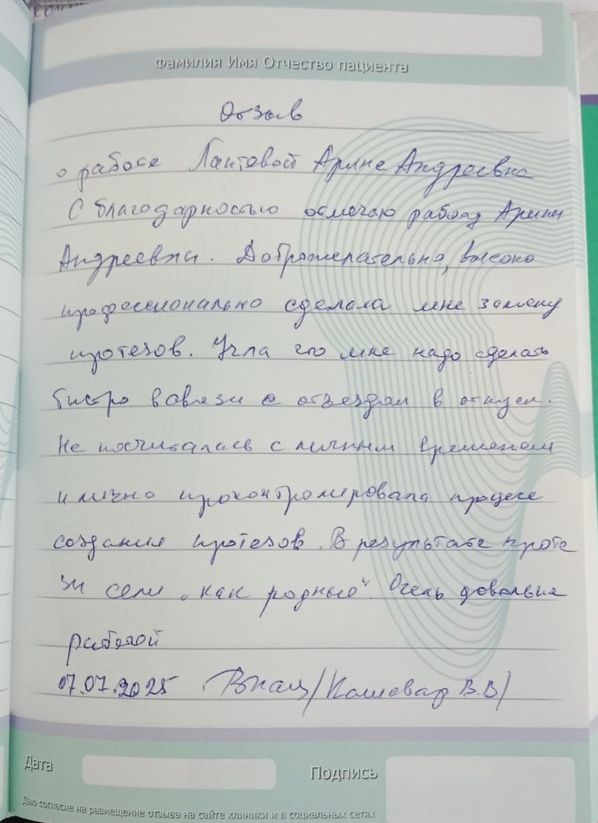 Фамилия Имя Отчество пациента
Отзыв
о работе Лаптевой Арине Андреевне
С благодарностью отмечаю работу Арины
Андреевны. Доброжелательно, высоко
профессионально сделала мне замену
протезов. Учла что мне надо сделать
быстро в связи с отъездом в отпуск.
Не посчиталась с личным временем
и лично проконтролировала процесс
создания протезов. В результате проте
зы сели "как родные". Очень довольна
работой
07.07.2025 /Кошевар В.В/
Дата
Подпись
Даю согласие на размещение отзыва на сайте клиники и в социальных сетях